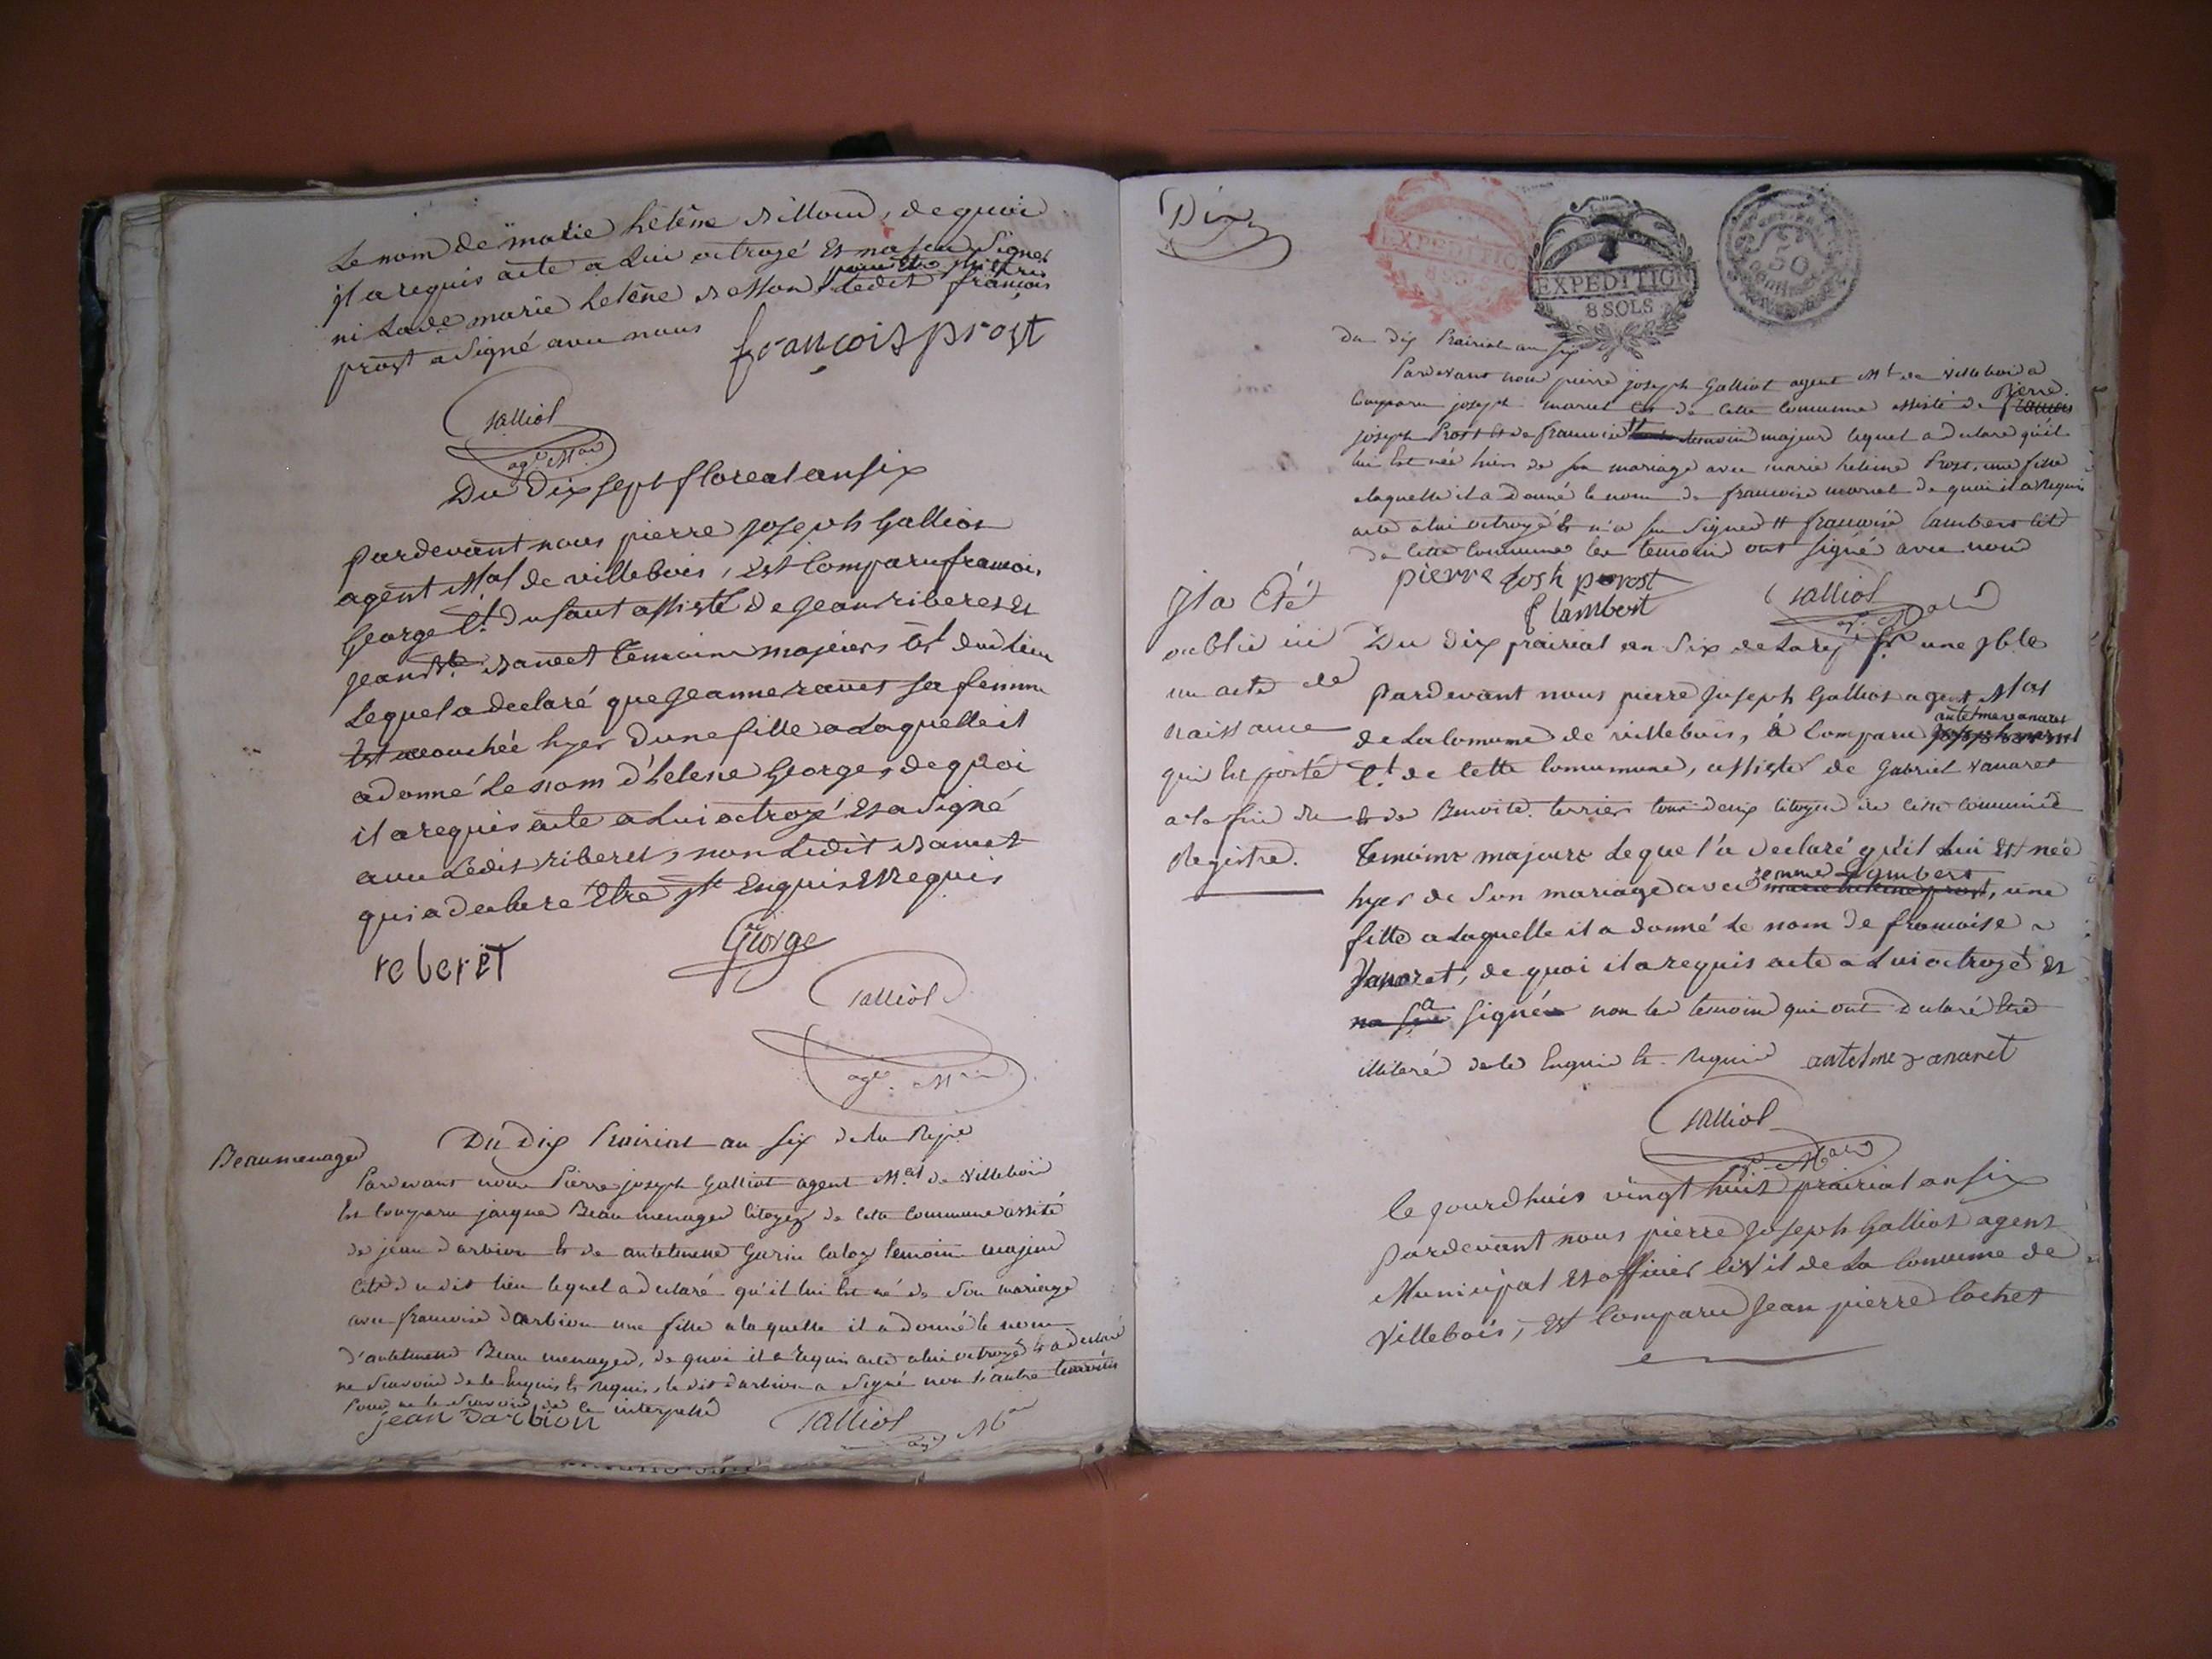 Le nom de marie helêne sillom, de quoi
il a requis acte a Lui octroyé Et na seu Signer
ni Lade marie helêne ledit françois
prost a Signé avec nous
françois prost
Galliot
agt Mal
Du Dix sept floreal an six
pardevant nous pierre joseph Galliot
agent Mal de villebois, Est Comparu francois
George Ct. du saut assisté de jean riberet Et
jean Bte. temoins majeurs Ct dud lieu
Lequel a declaré que jeanne ravet sa femme
Est accouchée hyer d'une fille a Laquelle il
a donné Le nom d'helene George, de quoi
il a requis acte a Lui octroyé Et a Signé
avec Ledit riberet, non Ledit
qui a declaré Etre Enquis Et requis
reberet
George
Galliot
agt. Mal
Beaumenager
Du Dix Prairial an Six de la Repe
Pardevant nous Pierre joseph Galliot agent Mal de Villebois
Est Comparu jacque Beaumenager Citoyen de cette Commune assisté
de jean darbion Et de antelmme Gurin Caloz temoins majeurs
Cite du dit lieu lequel a declaré qu'il lui Est né de Son mariage
avec francoise darbion une fille a laquelle il a donné le nom
d'antelmme Beau menager, de quoi il a requis acte a lui octroyé Et a declaré
ne Scavoir de ce Enquis Et requis, le dit darbion a Signé non l'autre temoin
pour ne le Scavoir de ce interpellé
jean darbion
Galliot
agt Mal
Dix
EXPEDITION
8 SOLS
EXPEDITION
8 SOLS
50
Centimes
Du dix Prairial an six
Pardevant nous pierre joseph Galliot agent Mal de Villebois a
Comparu joseph maruet Ct de cette Commune assisté de Pierre
joseph Prost Et de francoise temoins majeurs lequel a declaré qu'il
lui Est née hier de son mariage avec marie helene Prost, une fille
a laquelle il a donné le nom de francoise maruet de quoi il a requis
acte a lui octroyé Et n'a su signer # francoise lambert Cite
de cette Commune les temoins ont signé avec nous
pierre josh prost
f lambert
Galliot
agt Mal
Il a Eté
oublié ici
un acte de
naissance
qui Est porté
a la fin du
Registre.
Du Dix prairial an Six de La rep fr une Ible
pardevant nous pierre joseph Galliot agent Mal
de La Comune de villebois, à Comparu antelme vanaret
Ct. de Cette Commune, assister de Gabriel vanaret
Et de Benoite terrier tous deux Citoyens de Cette Commune
temoins majeurs Lequel a declaré qu'il Lui Est née
hyer de Son mariage avec Lambert, une
fille a Laquelle il a donné Le nom de francoise
Vanaret, de quoi il a requis acte a Lui octroyé Et
a signé non les temoins qui ont declaré Etre
illiteré de ce Enquis Et requis antelme vanaret
Galliot
agt. Mal
Ce jourdhuis vingt huit prairial an six
pardevant nous pierre joseph Galliot agent
Municipal Et officier Civil de La Comune de
Villebois, Est Comparu Jean pierre Cochet